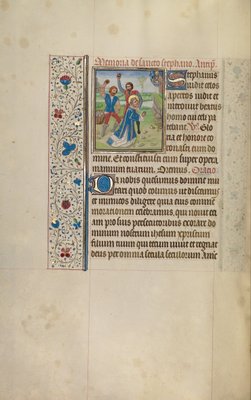 Memoria de sancto stephano. Antiph.
Stephanus
vidit celos
apertos vidit et
introivit beatus
homo cui celi pa
tebant. V. Glo
ria et honore co
ronasti eum do
mine. Et constituisti eum super opera
manuum tuarum. Oremus. Oracio
Da nobis quesumus domine imi
tari quod colimus ut discamus
et inimicos diligere quia eius commē
moracionem celebramus, qui novit eci
am pro suis persecutoribus exorare do
minum nostrum ihesum xpristum
filium tuum qui tecum vivit et regnat
deus per omnia secula seculorum Amē